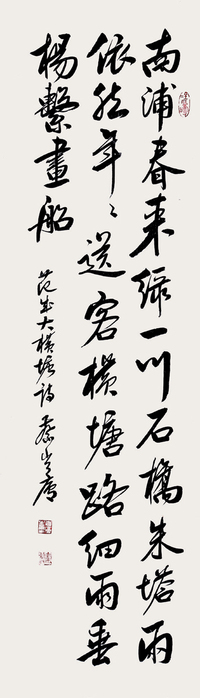 南浦春来緑一川石橋朱塔兩
依然年〻送客橫塘路細雨垂
楊繫畫船
范成大橫塘詩